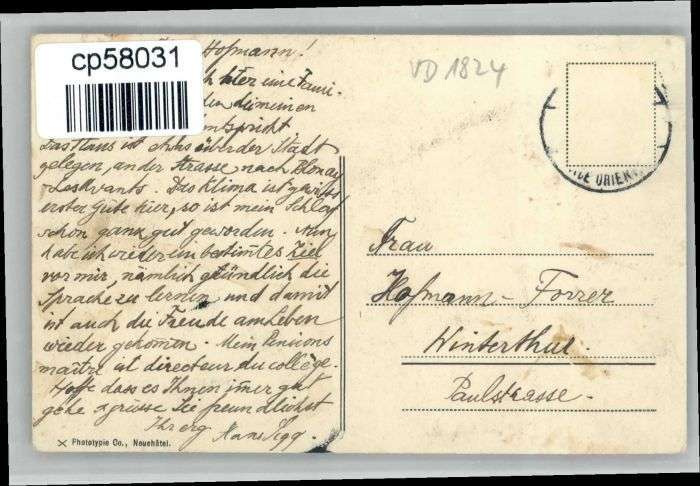 cp58031
Hofmann!
hier eine Fami-
den die meinen
entspricht
Das Haus ist etwas über der Stadt
gelegen, an der Strasse nach Blonay
Das Klima ist gewiss
erster Güte hier, so ist mein Schlaf
schon ganz gut geworden. Nun
habe ich wieder ein bestimtes Ziel
vor mir, nämlich gründlich die
Sprache zu lernen und damit
ist auch die Freude am Leben
wieder gekommen. Mein Pensions
maître ist directeur du collège.
Hoffe dass es Ihnen imer gut
gehe & grüsse Sie freundlichst
Ihr erg
Hans
Phototypie Co., Neuchâtel.
VD 1824
Frau
Hofmann-Forrer
Winterthur.
Paulstrasse.